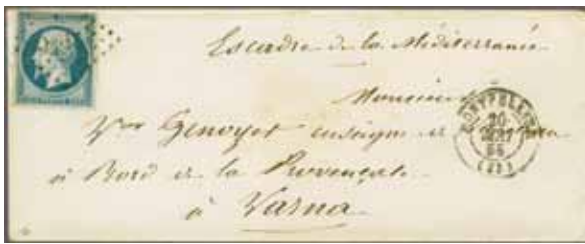 Escadre de la Méditerranée
Monsieur
Vor Genoyet enseigne de
à Bord de la Provençale
à Varna
20